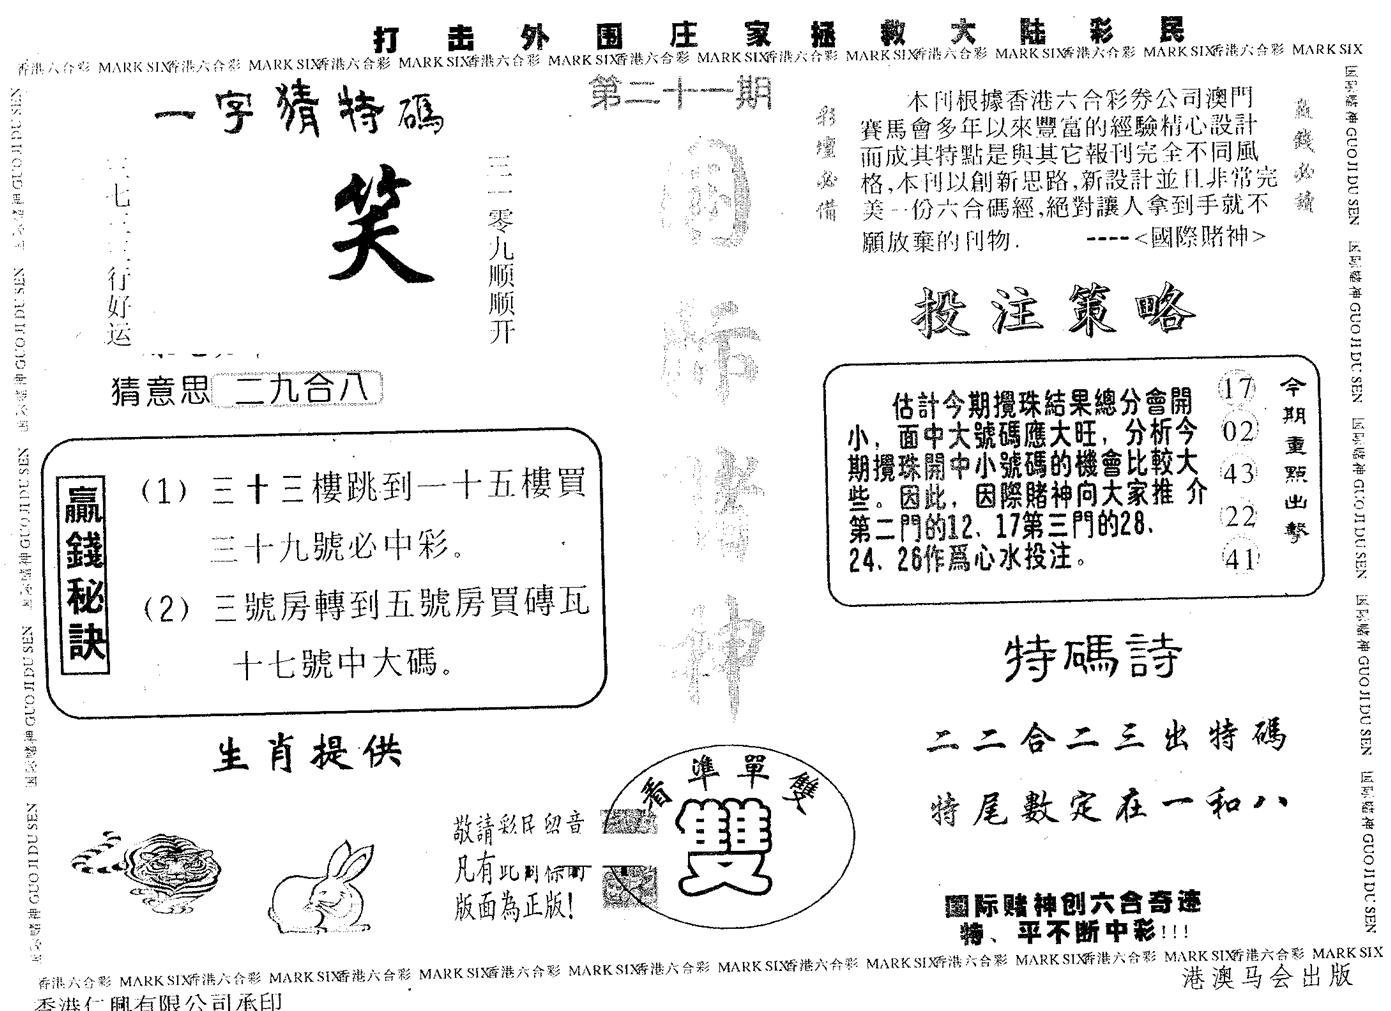 打击外围庄家拯救大陆彩民
香港六合彩 MARK SIX香港六合彩 MARK SIX香港六合彩 MARK SIX香港六合彩 MARK SIX香港六合彩 MARK SIX香港六合彩 MARK SIX香港六合彩 MARK SIX香港六合彩 MARK SIX香港六合彩 MARK SIX
一字猜特碼
行好运
笑
三一零九顺顺开
猜意思 二九合八
第二十一期
彩壇必備
本刊根據香港六合彩券公司澳門
賽馬會多年以來豐富的經驗精心設計
而成其特點是與其它報刊完全不同風
格,本刊以創新思路,新設計並且非常完
美一份六合碼經,絕對讓人拿到手就不
願放棄的刊物. ----<國際賭神>
贏錢必讀
贏錢秘訣
(1) 三十三樓跳到一十五樓買
三十九號必中彩。
(2) 三號房轉到五號房買磚瓦
十七號中大碼。
国际赌神
投注策略
估計今期攪珠結果總分會開
小，面中大號碼應大旺，分析今
期攪珠開中小號碼的機會比較大
些。因此，因際賭神向大家推介
第二門的12、17第三門的28、
24、26作爲心水投注。
17
02
43
22
41
今期重點出擊
特碼詩
二二合二三出特碼
特尾數定在一和八
生肖提供
敬請彩民留音
凡有此
版面為正版!
看準單雙
雙
国际赌神创六合奇迹
特、平不断中彩!!!
香港六合彩 MARK SIX香港六合彩 MARK SIX香港六合彩 MARK SIX香港六合彩 MARK SIX香港六合彩 MARK SIX香港六合彩 MARK SIX香港六合彩 MARK SIX香港六合彩 MARK SIX香港六合彩 MARK SIX
港澳马会出版
香港仁興有限公司承印
国际赌神 GUO JI DU SEN 国际赌神 GUO JI DU SEN 国际赌神 GUO JI DU SEN 国际赌神 GUO JI DU SEN 国际赌神 GUO JI DU SEN